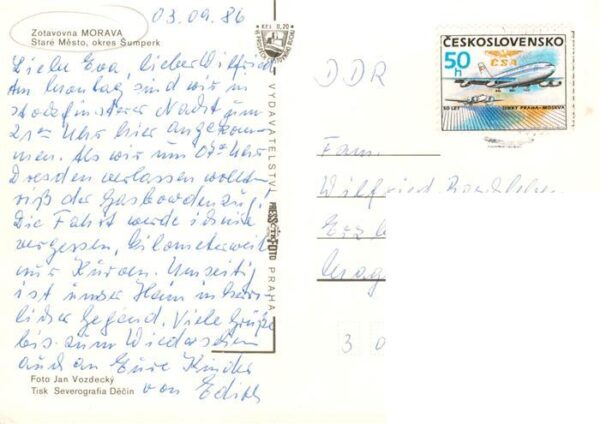 03.09.86
Zotavovna MORAVA
Staré Město, okres Šumperk
Liebe Eva, lieber Wilfried!
Am Montag sind wir in
stockfinsterer Nacht um
21°° Uhr hier angekom-
men. Als wir um 07°° Uhr
Dresden verlassen wollten
riß der Gasbowdenzug!
Die Fahrt werde ich nie
vergessen, kilometerweit
nur Kurven. Umseitig
ist unser Heim in herr-
licher Gegend. Viele Grüße
bis zum Wiedersehen
auch an Eure Kinder
von Edith
Foto Jan Vozdecký
Tisk Severografia Děčín
Kčs 0,20
VYDAVATELSTVÍ PRESSFOTO PRAHA
ČESKOSLOVENSKO
50h
ČSA
50 LET LINKY PRAHA-MOSKVA
DDR
Fam.
Wilfried
Mag
3 0